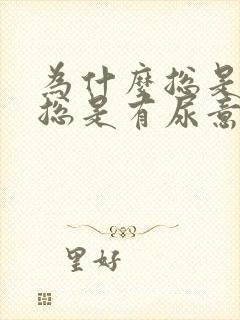 為什麼總是
總是有尿意
望好